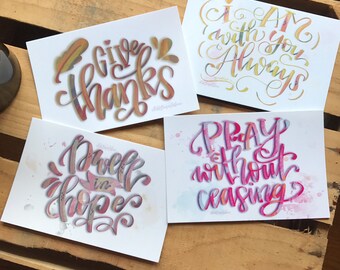 Give
thanks
I AM
with you
Always
Dwell
in
hope
PRAY
without
ceasing